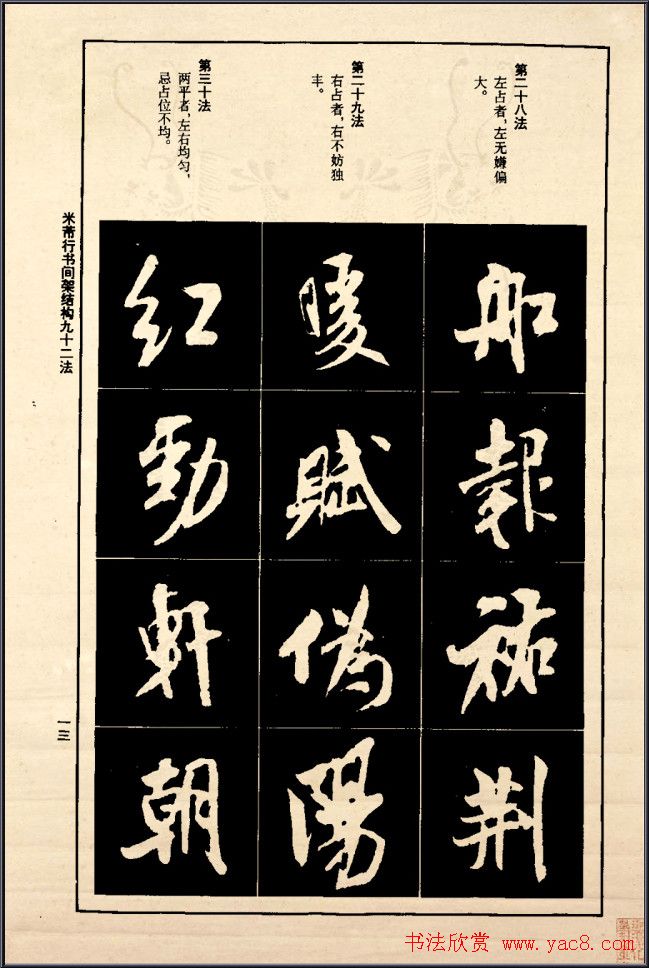 第二十八法
左占者，左无嫌偏
大。
第二十九法
右占者，右不妨独
丰。
第三十法
两平者，左右均匀，
忌占位不均。
船
報
祐
荆
暖
賦
偽
陽
紅
勁
軒
朝
米芾行书间架结构九十二法
一三
书法欣赏 www.yac8.com